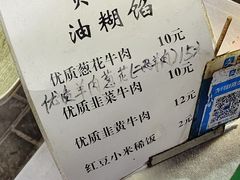 油糊馅
优质葱花牛肉 10元
优质羊肉葱花(孜然肉)15元
优质韭菜牛肉 10元
优质韭黄牛肉 12元
红豆小米稀饭 2元